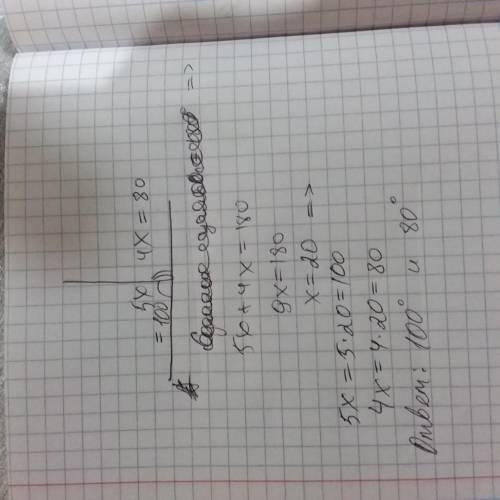 5x 4x = 80
= 100
=>
5x + 4x = 180
9x = 180
x = 20 =>
5x = 5·20 = 100
4x = 4·20 = 80
Ответ: 100° и 80°